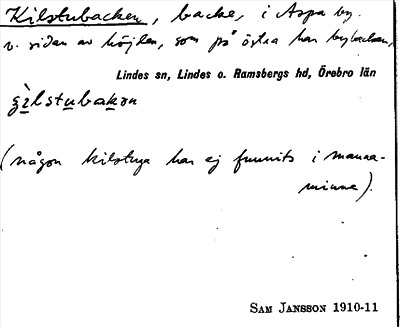 Kilstubacken, backe, i Aspa by.
v. sidan av höjden, som på östra har bybacken,
Lindes sn, Lindes o. Ramsbergs hd, Örebro län
(någon kilstuga har ej funnits i manna-
minne).
SAM JANSSON 1910-11